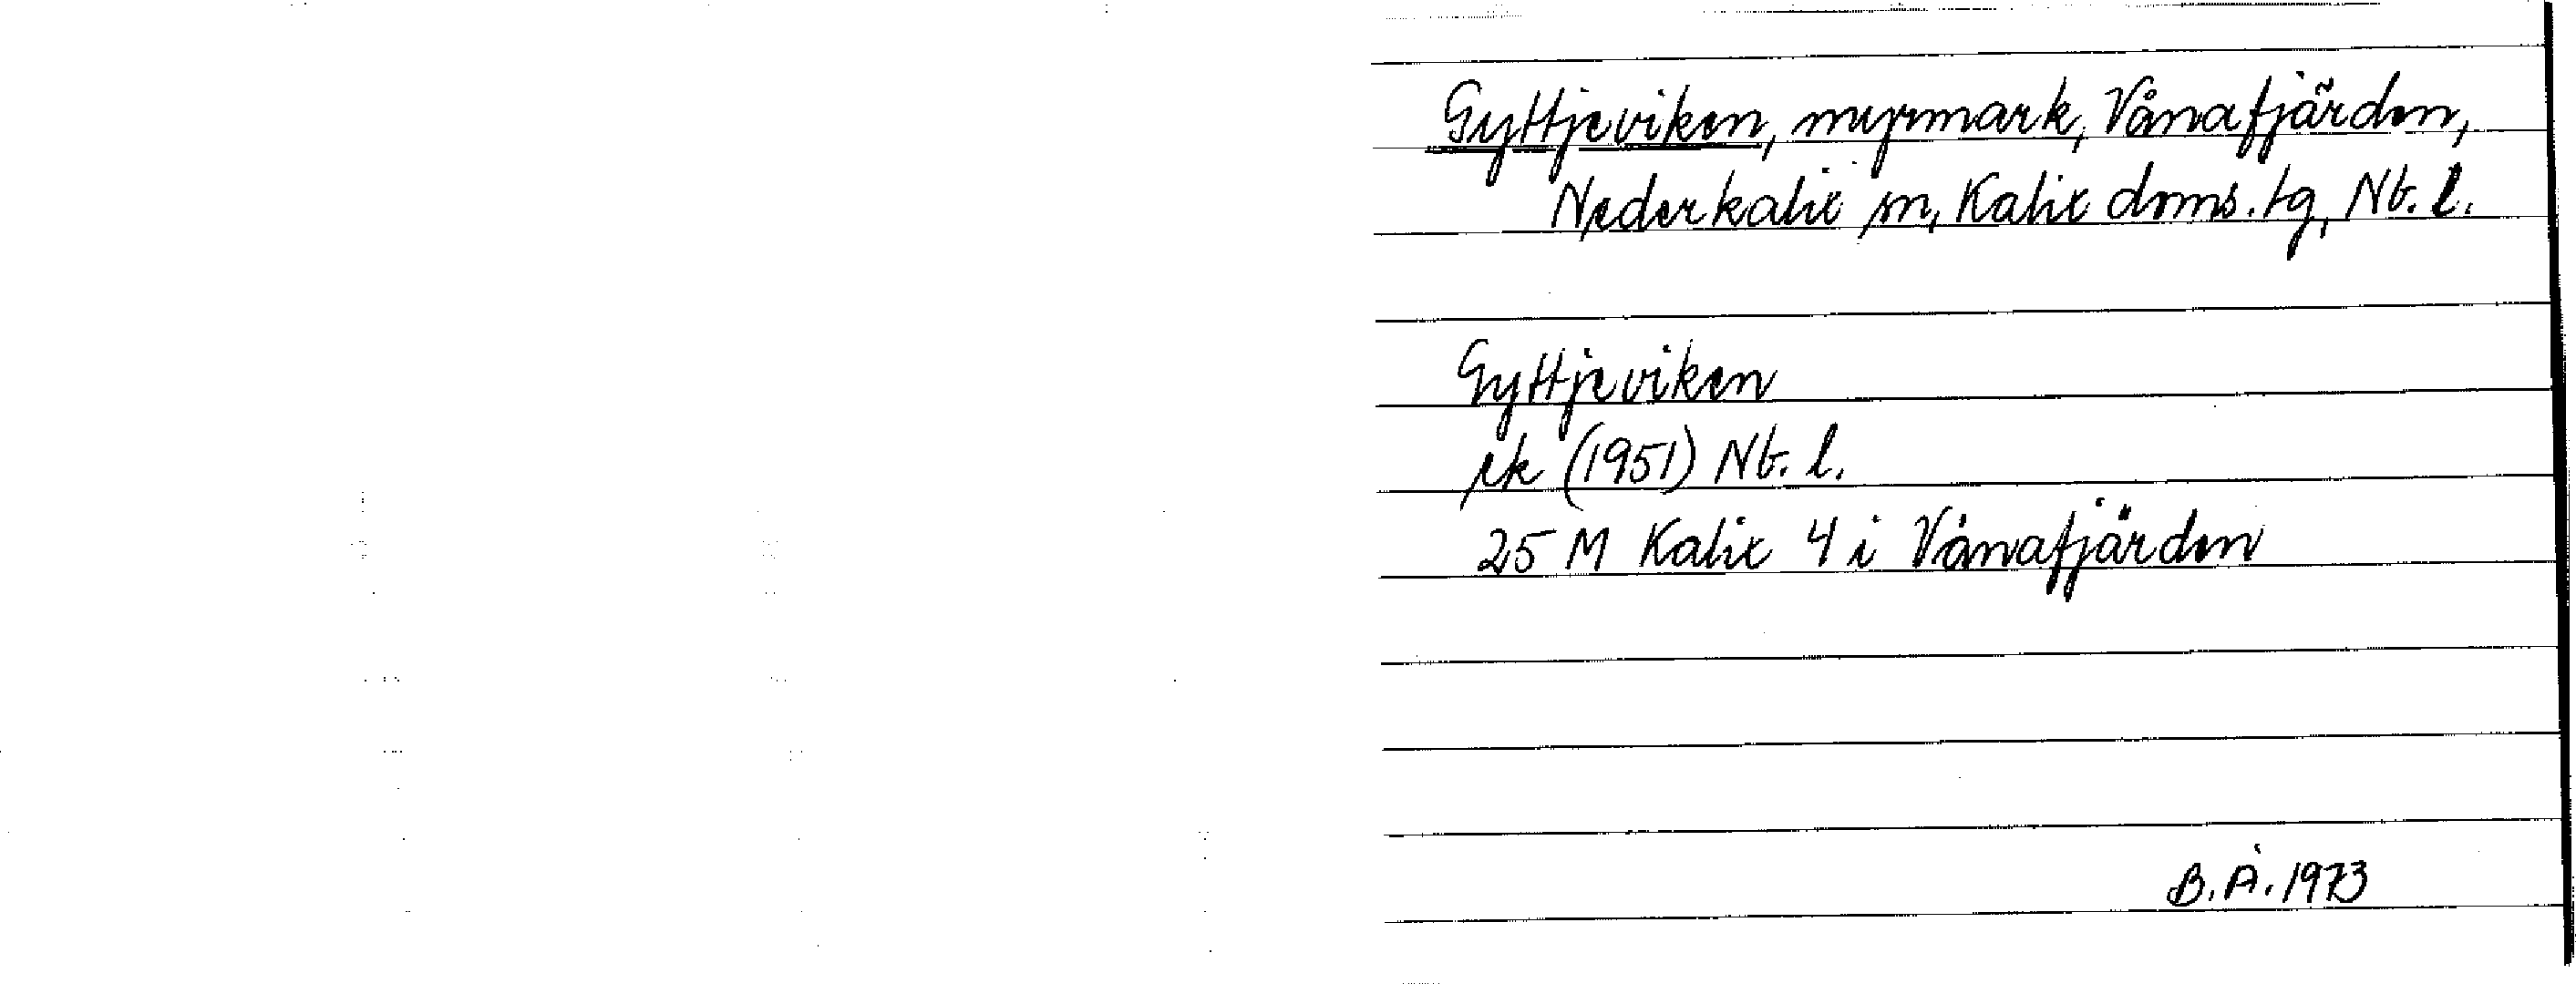 Gyttjeviken, myrmark, Vånafjärden,
Nederkalix sn, Kalix doms. tg, Nb. l.
Gyttjeviken
ek (1951) Nb. l.
25 M Kalix 4 i Vånafjärden
B. Å. 1973